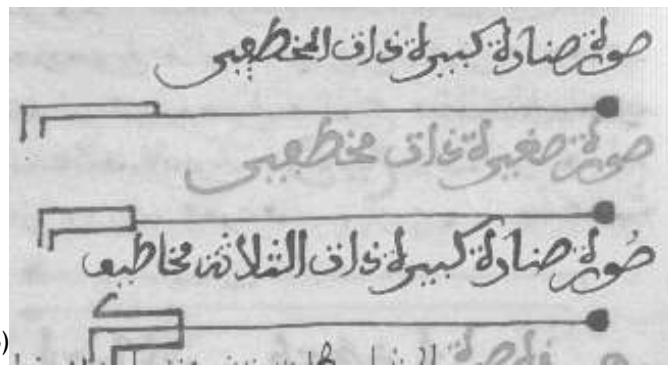 صورة صنارة كبيرة ذات المخطفين
صورة صغيرة ذات مخطفين
صورة صنارة كبيرة ذات الثلاثة مخاطيف
)